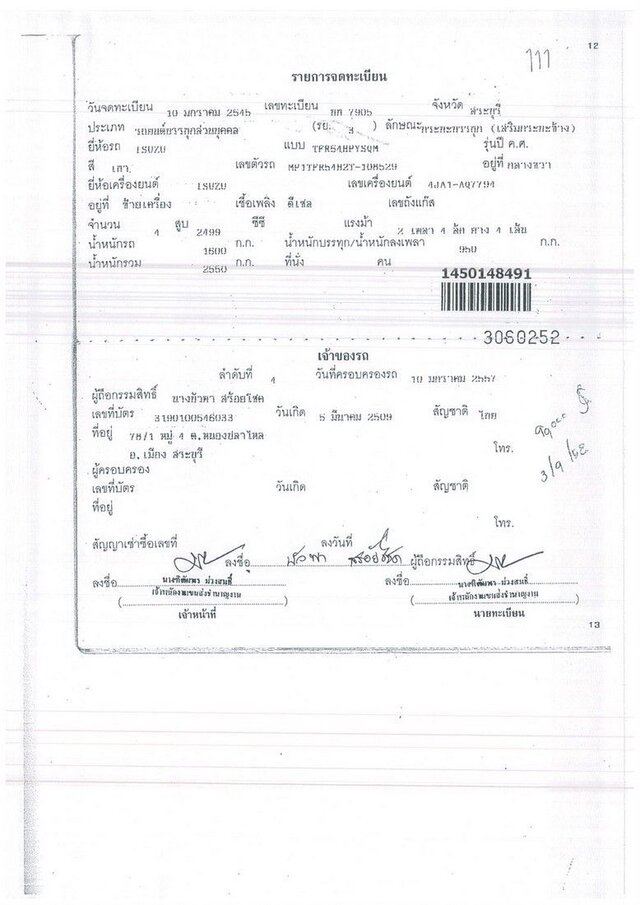 12
111
รายการจดทะเบียน
วันจดทะเบียน 10 มกราคม 2545 เลขทะเบียน 7905 จังหวัด สระบุรี
ประเภท รถยนต์บรรทุกส่วนบุคคล (รย. 3 ) ลักษณะ กระบะบรรทุก (เสริมกระบะข้าง)
ยี่ห้อรถ ISUZU แบบ TFR54HPYSQM รุ่นปี ค.ศ.
สี เทา เลขตัวรถ MP1TFR54H2T-108529 อยู่ที่ กลางขวา
ยี่ห้อเครื่องยนต์ ISUZU เลขเครื่องยนต์ 4JA1-AQ7794
อยู่ที่ ซ้ายเครื่อง เชื้อเพลิง ดีเซล เลขถังแก๊ส
จำนวน 4 สูบ 2499 ซีซี แรงม้า 2 เพลา 4 ล้อ ยาง 4 เส้น
น้ำหนักรถ 1600 ก.ก. น้ำหนักบรรทุก/น้ำหนักลงเพลา 950 ก.ก.
น้ำหนักรวม 2550 ก.ก. ที่นั่ง คน
1450148491
3060252
เจ้าของรถ
ลำดับที่ 4 วันที่ครอบครองรถ 10 มกราคม 2557
ผู้ถือกรรมสิทธิ์ นางบัวพา สร้อยโชค
เลขที่บัตร 3190100546033 วันเกิด 5 มีนาคม 2509 สัญชาติ ไทย
ที่อยู่ 78/1 หมู่ 4 ต.หนองปลาไหล
โทร.
อ.เมือง สระบุรี
ผู้ครอบครอง
เลขที่บัตร วันเกิด สัญชาติ
ที่อยู่
โทร.
สัญญาเช่าซื้อเลขที่ ลงวันที่
ลงชื่อ บัวพา สร้อยโชค ผู้ถือกรรมสิทธิ์
ลงชื่อ ลงชื่อ
เจ้าพนักงานขนส่งชำนาญงาน เจ้าพนักงานขนส่งชำนาญงาน
เจ้าหน้าที่ นายทะเบียน
13